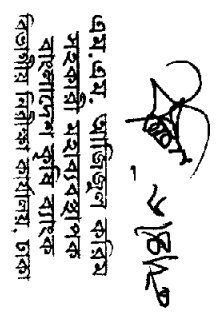 এম.এম. আজিজুল করিম
সহকারী মহাব্যবস্থাপক
বাংলাদেশ কৃষি ব্যাংক
বিভাগীয় নিরীক্ষা কার্যালয়, ঢাকা